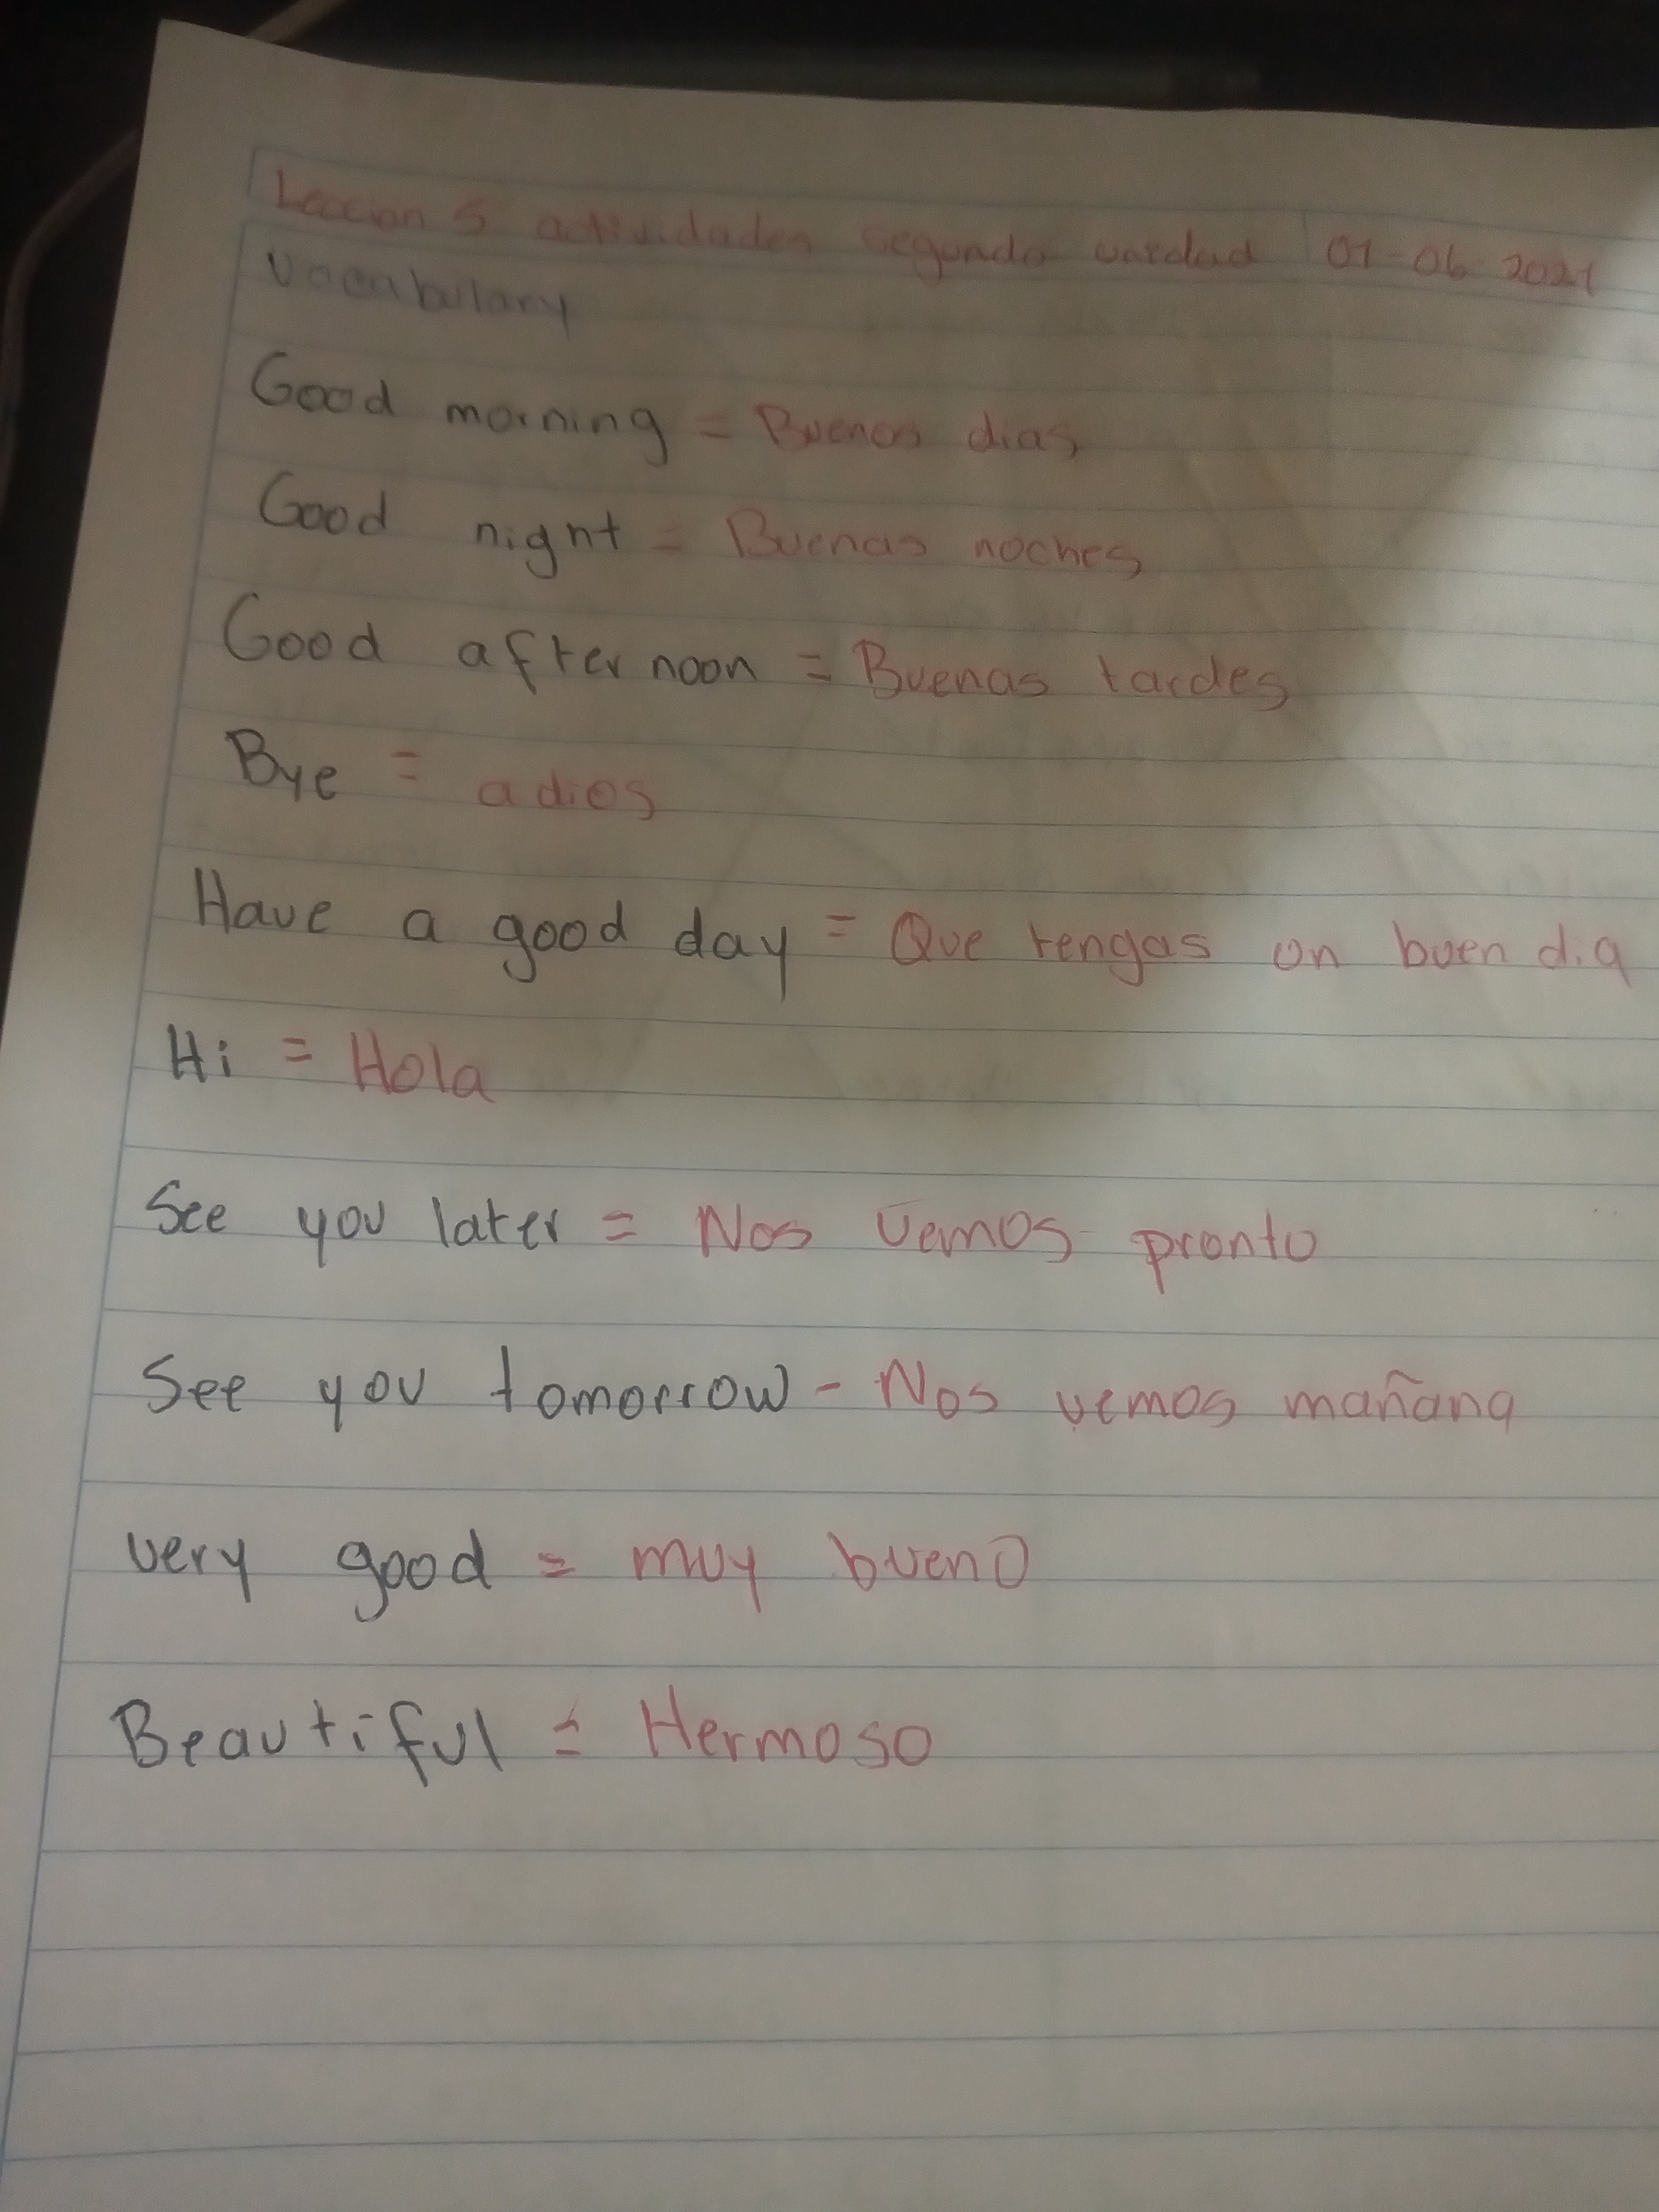 Leccion 5 actividades segunda unidad 01-06 2021
Vocabulary
Good morning = Buenos dias
Good night = Buenas noches
Good afternoon = Buenas tardes
Bye = adios
Have a good day = Que tengas un buen dia
Hi = Hola
See you later = Nos vemos pronto
See you tomorrow - Nos vemos mañana
very good = muy bueno
Beautiful = Hermoso